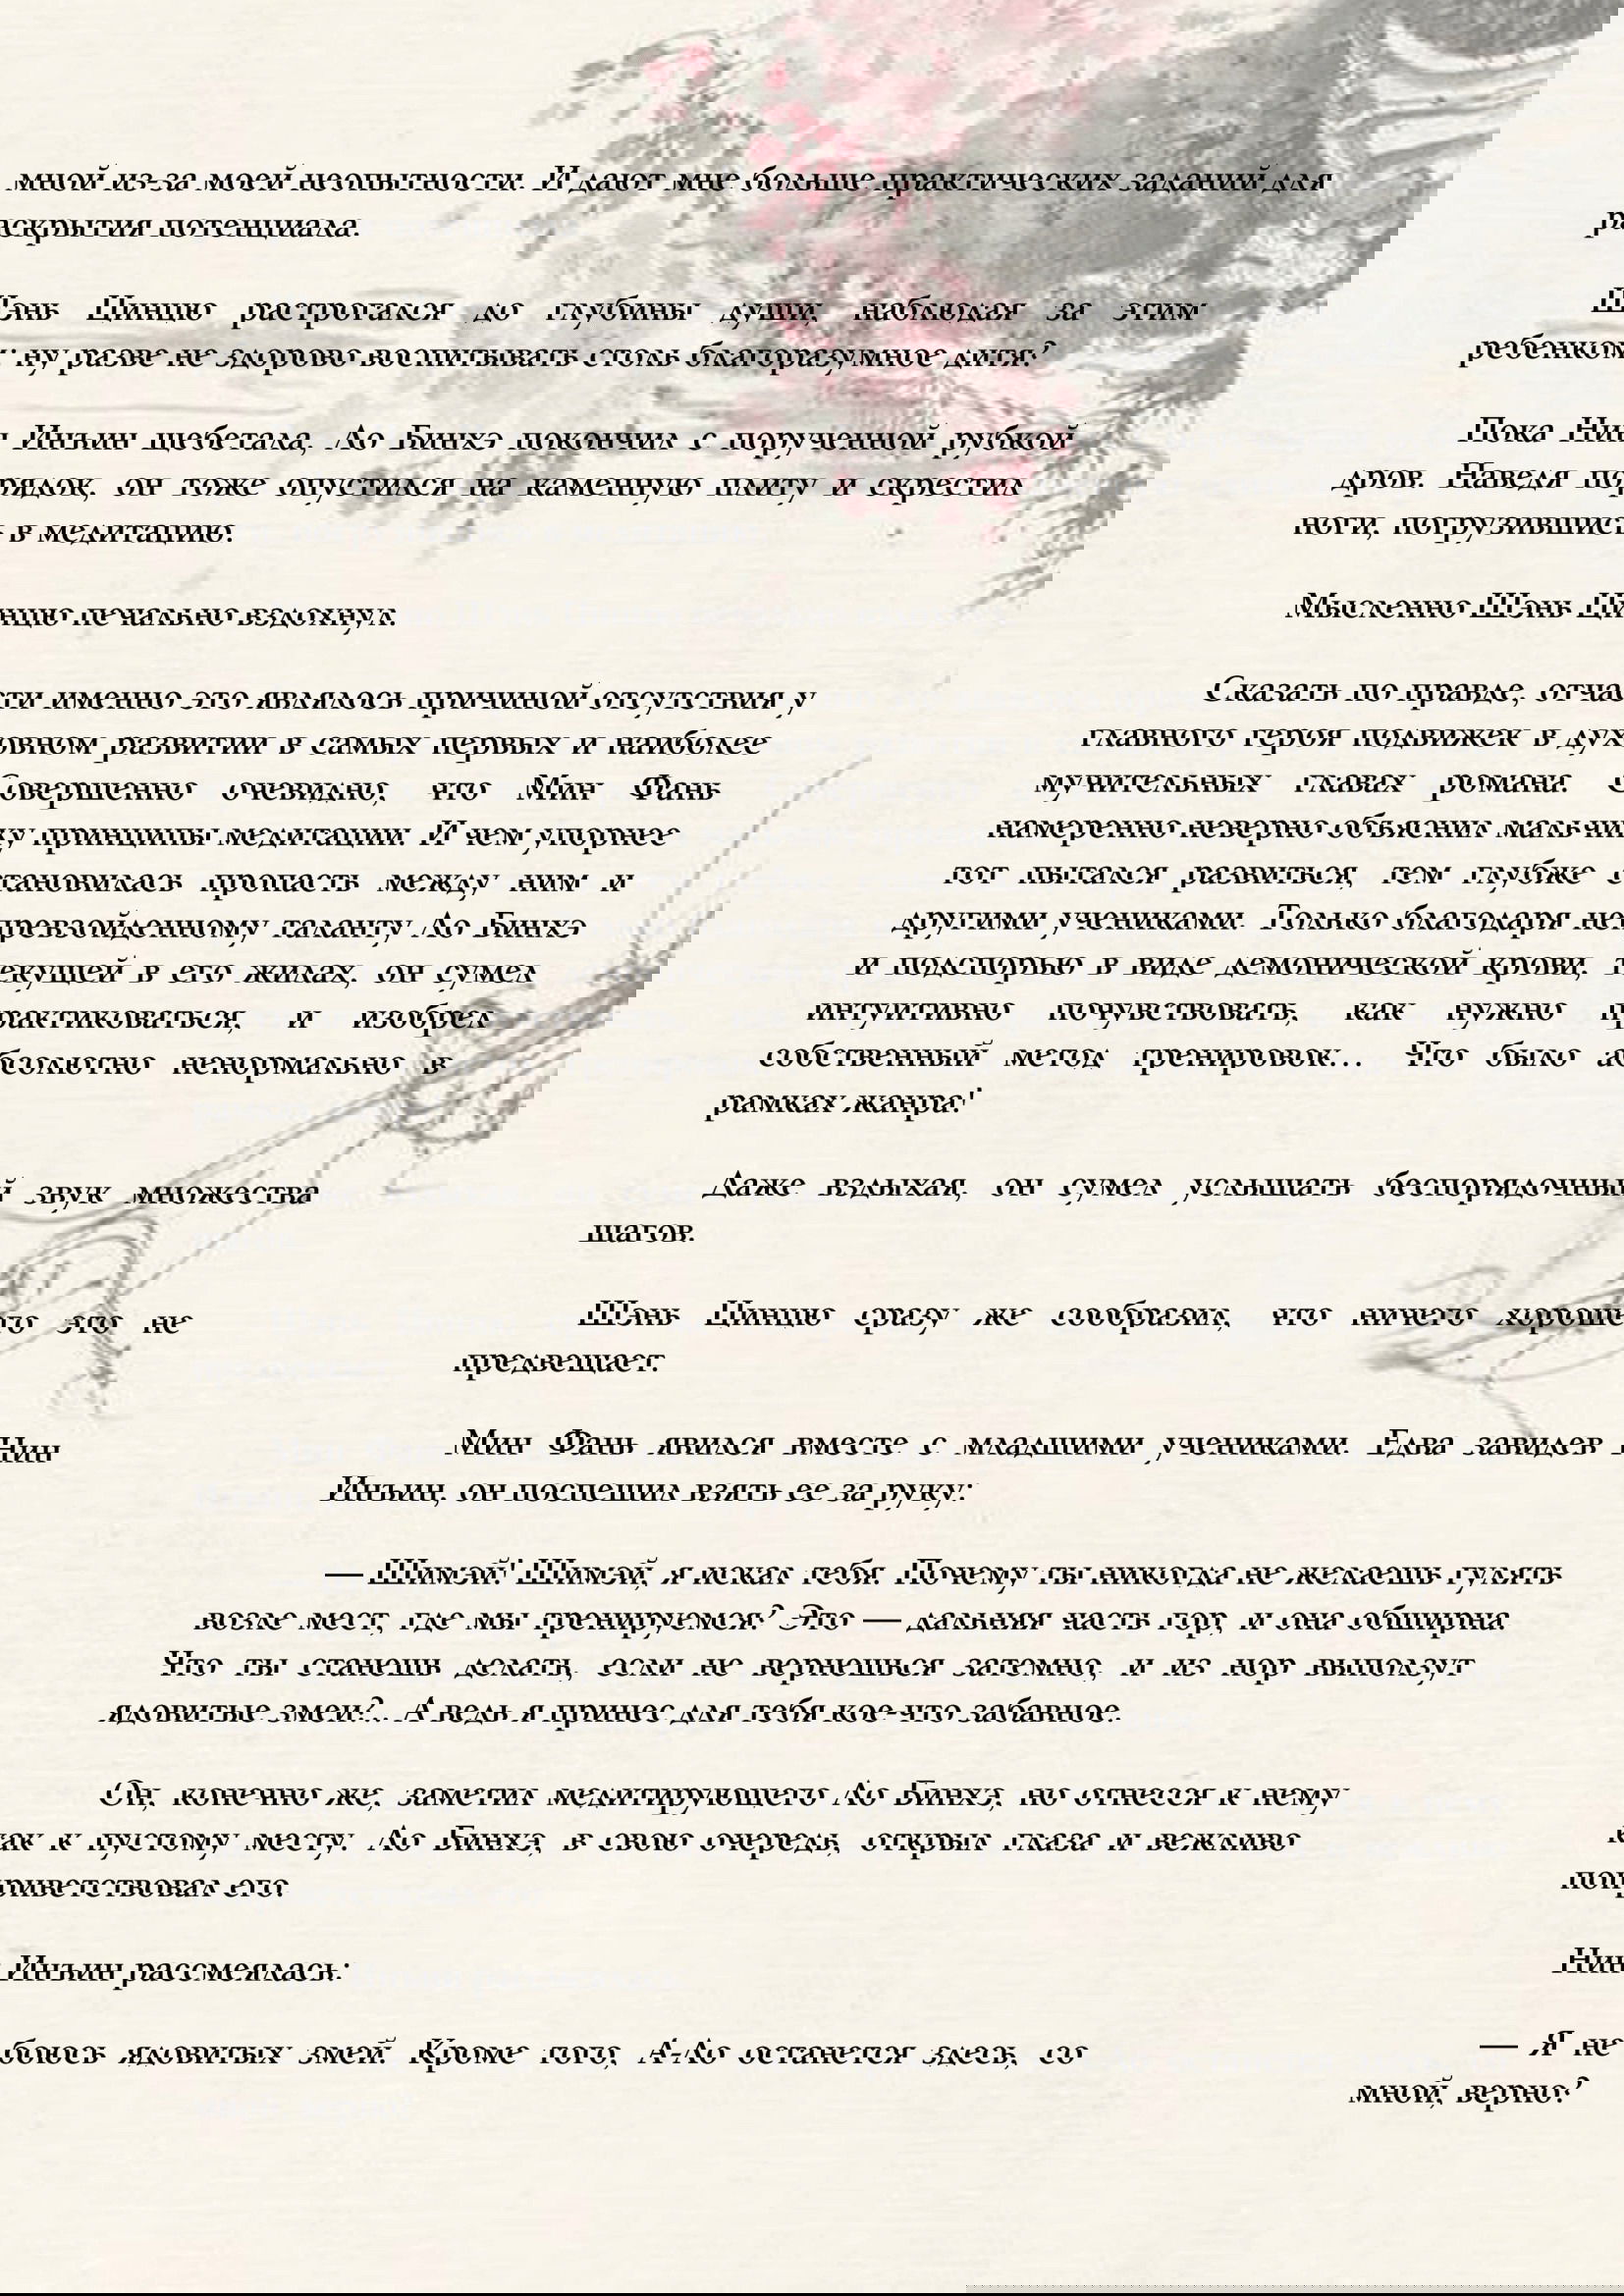 мной из-за моей неопытности. И дают мне больше практических заданий для
раскрытия потенциала.
Шэнь Цинцю растрогался до глубины души, наблюдая за этим
ребенком: ну разве не здорово воспитывать столь благоразумное дитя?
Пока Нин Инъин щебетала, Ло Бинхэ покончил с порученной рубкой
дров. Наведя порядок, он тоже опустился на каменную плиту и скрестил
ноги, погрузившись в медитацию.
Мысленно Шэнь Цинцю печально вздохнул.
Сказать по правде, отчасти именно это являлось причиной отсутствия у
главного героя подвижек в духовном развитии в самых первых и наиболее
мучительных главах романа. Совершенно очевидно, что Мин Фань
намеренно неверно объяснил мальчику принципы медитации. И чем упорнее
тот пытался развиться, тем глубже становилась пропасть между ним и
другими учениками. Только благодаря непревзойденному таланту Ло Бинхэ
и подспорью в виде демонической крови, текущей в его жилах, он сумел
интуитивно почувствовать, как нужно практиковаться, и изобрел
собственный метод тренировок… Что было абсолютно ненормально в
рамках жанра!
Даже вздыхая, он сумел услышать беспорядочный звук множества
шагов.
Шэнь Цинцю сразу же сообразил, что ничего хорошего это не
предвещает.
Мин Фань явился вместе с младшими учениками. Едва завидев Нин
Инъин, он поспешил взять ее за руку:
— Шимэй! Шимэй, я искал тебя. Почему ты никогда не желаешь гулять
возле мест, где мы тренируемся? Это — дальняя часть гор, и она обширна.
Что ты станешь делать, если не вернешься затемно, и из нор выползут
ядовитые змеи?.. А ведь я принес для тебя кое-что забавное.
Он, конечно же, заметил медитирующего Ло Бинхэ, но отнесся к нему
как к пустому месту. Ло Бинхэ, в свою очередь, открыл глаза и вежливо
поприветствовал его.
Нин Инъин рассмеялась:
— Я не боюсь ядовитых змей. Кроме того, А-Ло останется здесь, со
мной, верно?